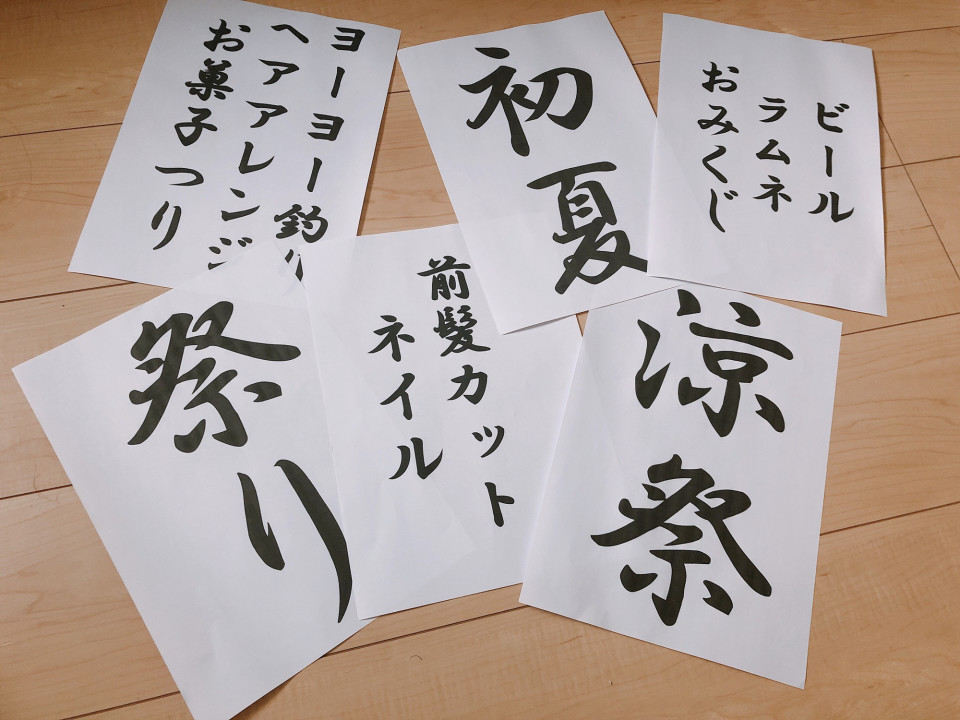 ヨーヨー釣り
ヘアアレンジ
お菓子つり
初夏
ビール
ラムネ
おみくじ
祭り
前髪カット
ネイル
涼祭